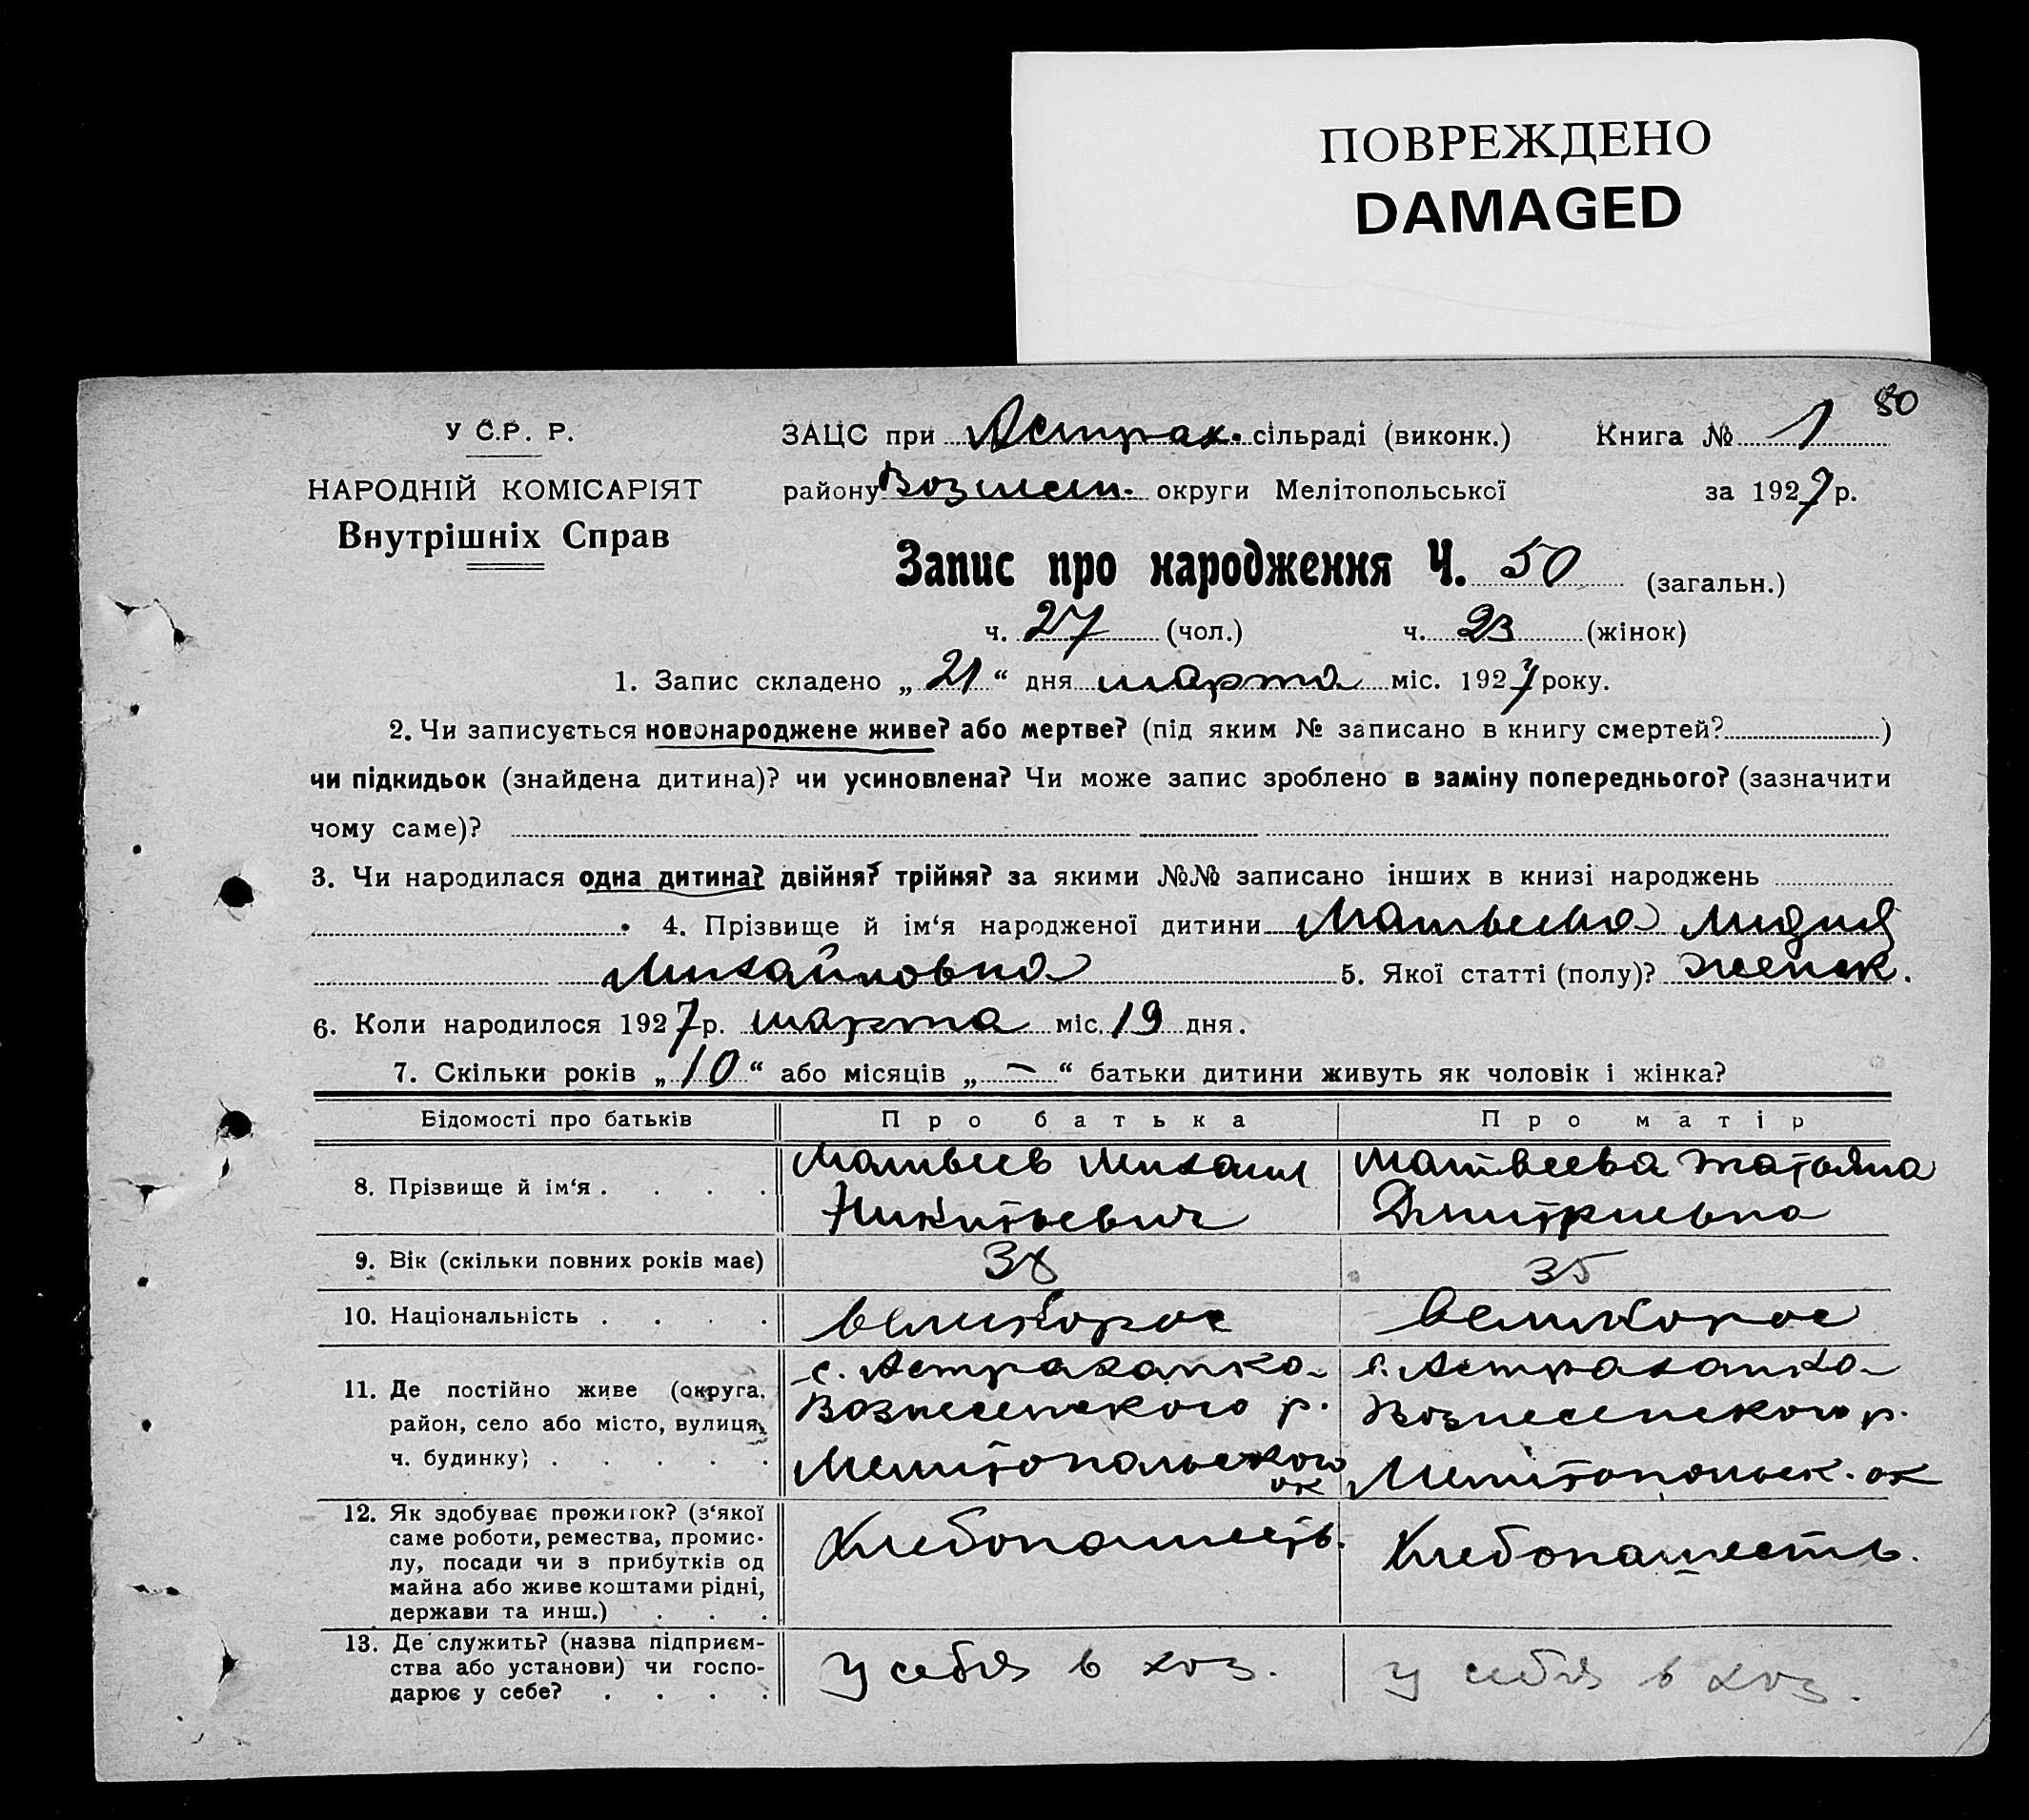 ПОВРЕЖДЕНО
DAMAGED
80
У С.Р. Р.
НАРОДНІЙ КОМІСАРІЯТ
Внутрішніх Справ
ЗАЦС при Астрах. сільраді (виконк.) Книга № 1
району Вознесен. округи Мелітопольської за 1927 р.
Запис про народження Ч. 50 (загальн.)
ч. 27 (чол.) ч. 23 (жінок)
1. Запис складено „21“ дня марта міс. 1927 року.
2. Чи записується новонароджене живе? або мертве? (під яким № записано в книгу смертей? )
чи підкидьок (знайдена дитина)? чи усиновлена? Чи може запис зроблено в заміну попереднього? (зазначити
чому саме)?
3. Чи народилася одна дитина? двійня? трійня? за якими №№ записано інших в книзі народжень
4. Прізвище й ім‘я народженої дитини Матвеева Лидия
Михайловна 5. Якої статті (полу)? женск.
6. Коли народилося 1927 р. марта міс. 19 дня.
7. Скільки років „10“ або місяців „—“ батьки дитини живуть як чоловік і жінка?
Відомості про батьків Про батька Про матір
8. Прізвище й ім‘я . . . . Матвеев Михаил Матвеева Татьяна
Никитьевич Дмитриевна
9. Вік (скільки повних років має) 38 35
10. Національність . . . . великорос великорос
11. Де постійно живе (округа, с. Астраханка- с. Астраханка-
район, село або місто, вулиця, Вознесенского р. Вознесенского р.
ч. будинку) . . . . . Мелитопольского ок Мелитопольск. ок
12. Як здобуває прожиток? (з‘якої
саме роботи, ремества, промис-
лу, посади чи з прибутків од
майна або живе коштами рідні,
держави та инш.) . . . Хлебопашеств. Хлебопашеств.
13. Де служить? (назва підприєм-
ства або установи) чи госпо-
дарює у себе? . . . . У себя в хоз. У себя в хоз.